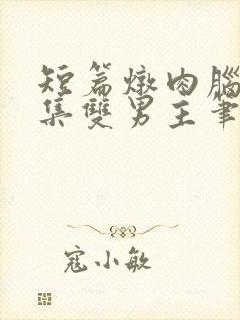 短篇燉肉腦
集雙男主軎
寇小敏